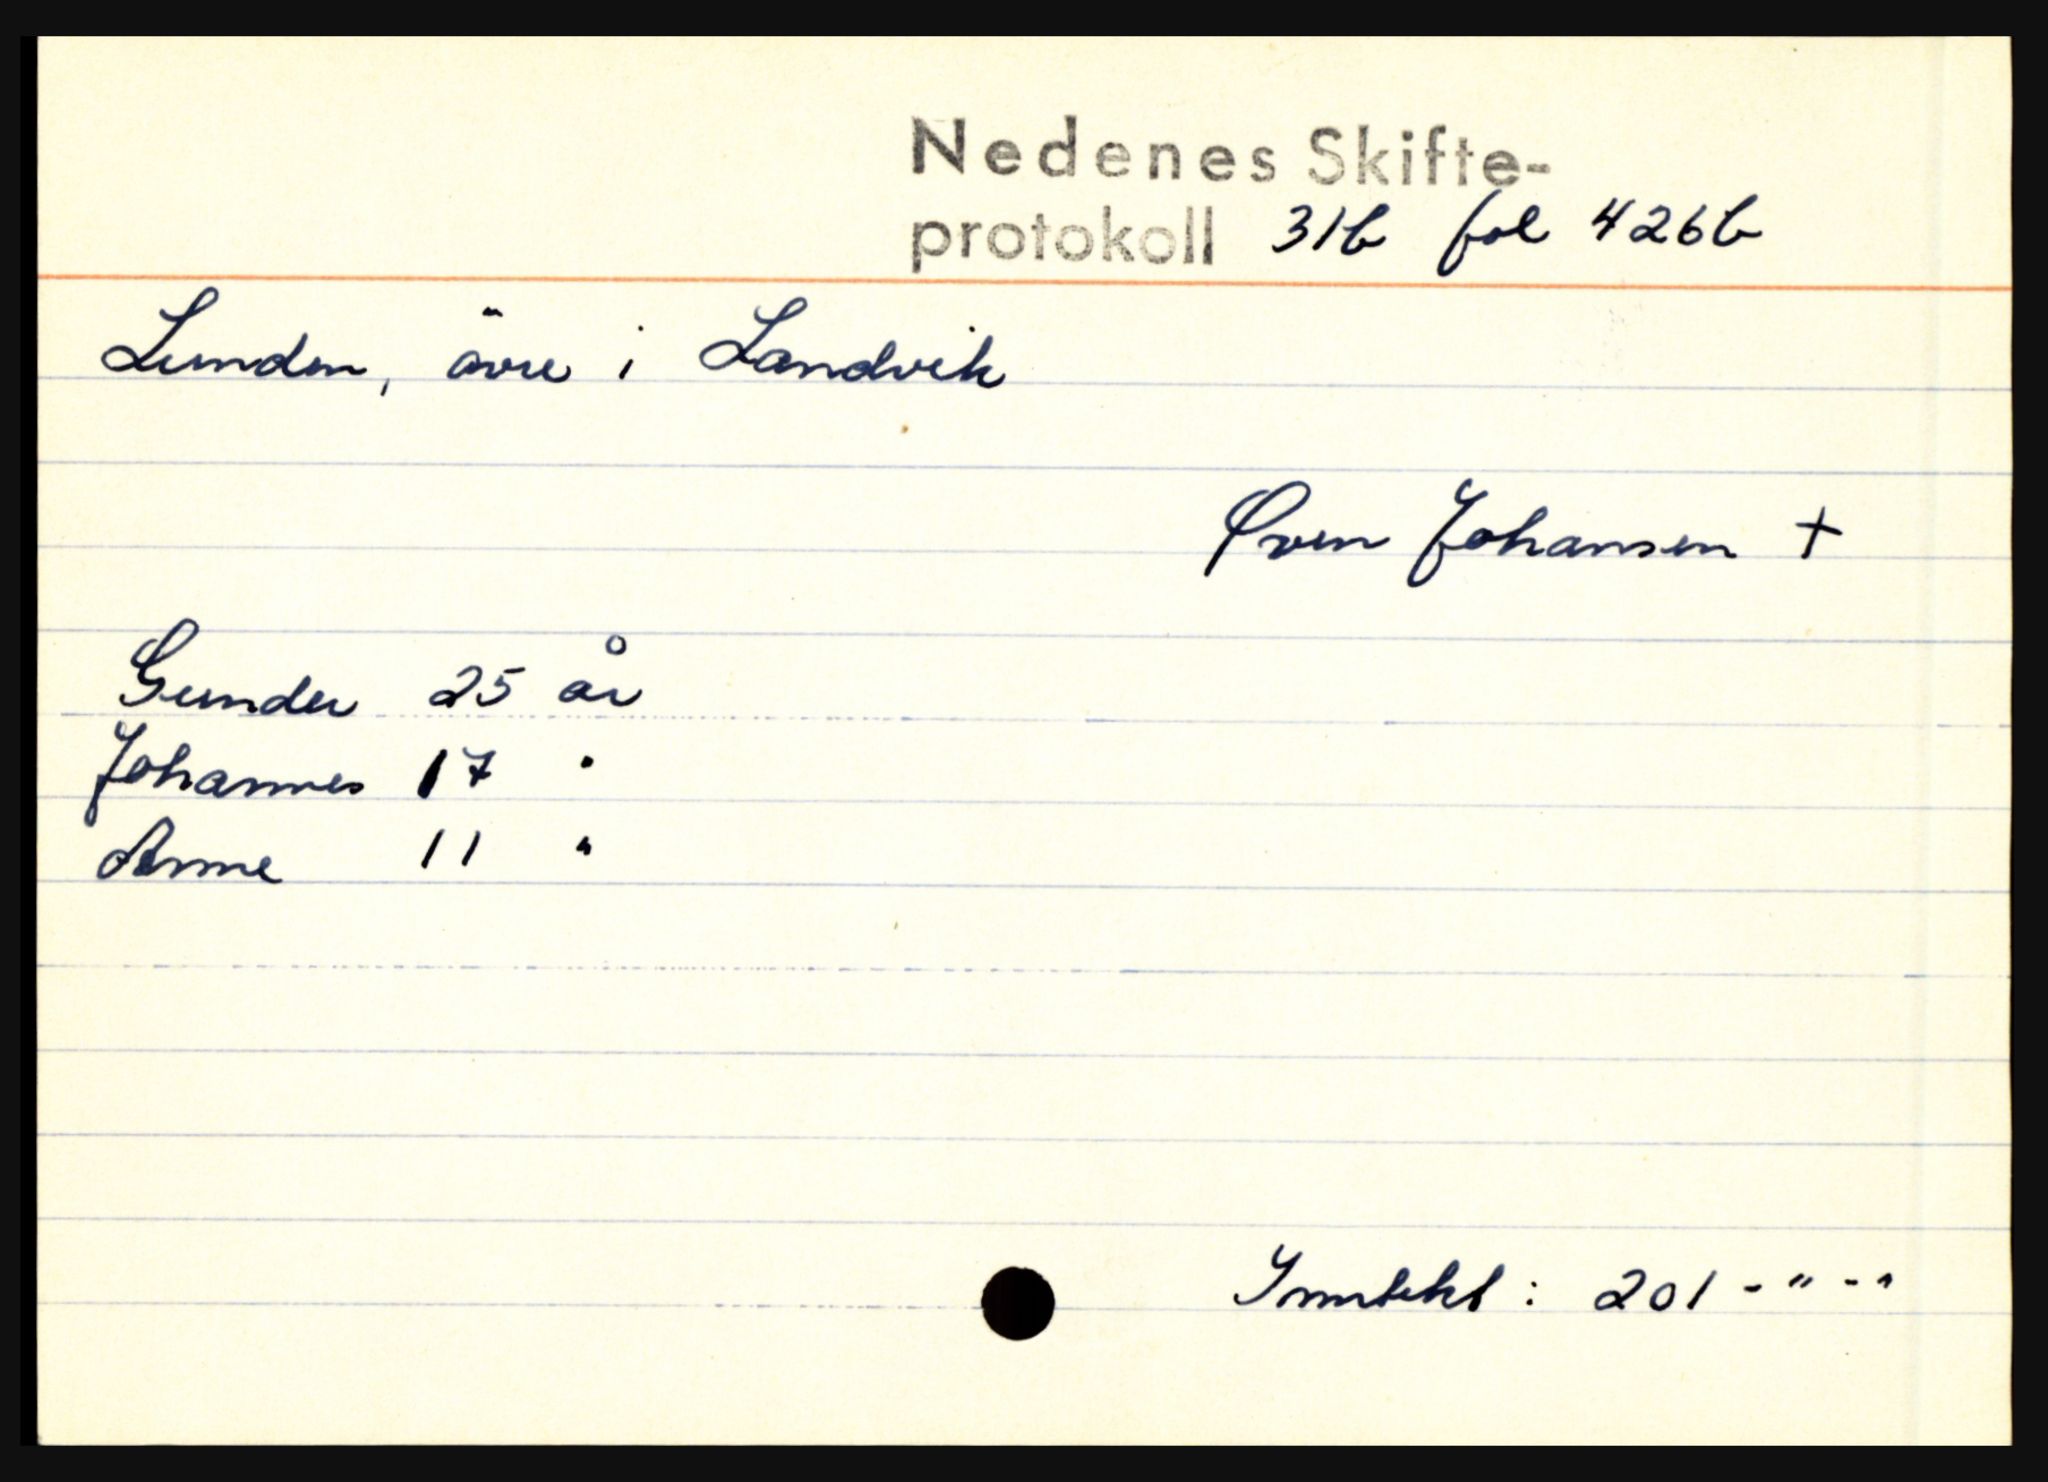 Nedenes Skifte-
protokoll 31b fol 426b
Lunden, övre i Landvik
Øven Johansen +
Gunder 25 år
Johannes 17 "
Anne 11 "
Inntekt : 201 - " - "